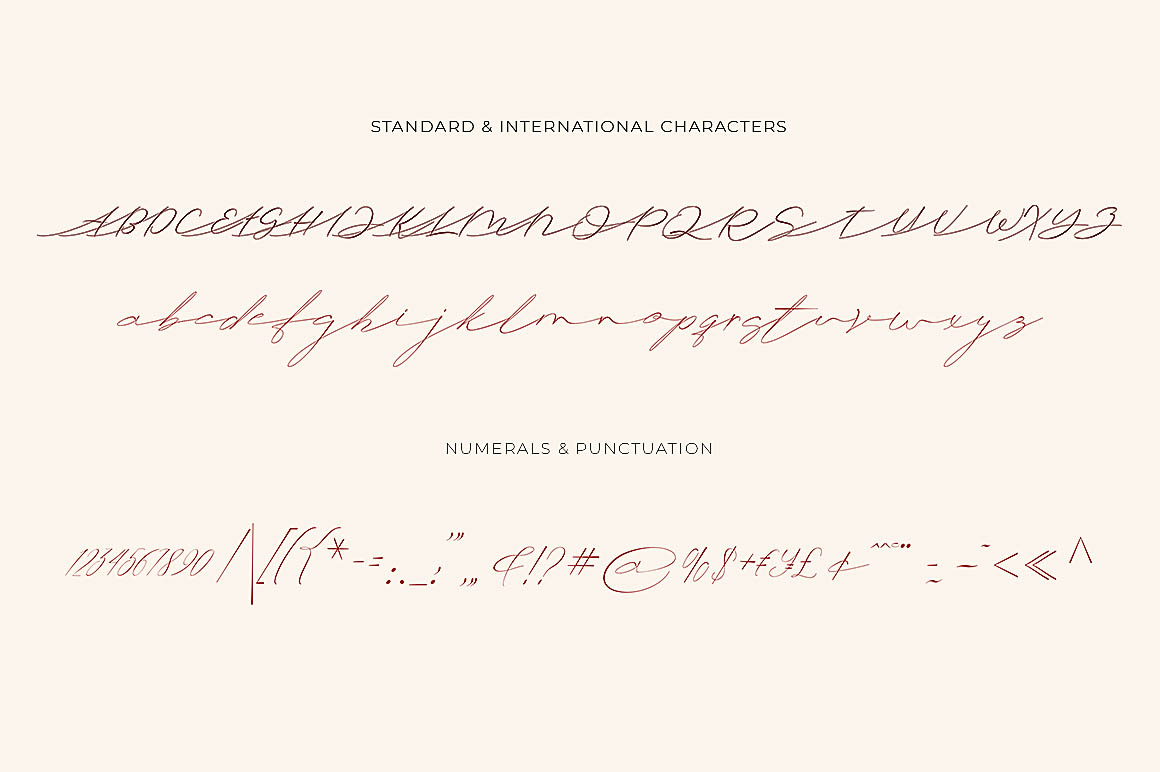 STANDARD & INTERNATIONAL CHARACTERS
ABCDEFGHIJKLMNOPQRSTUVWXYZ
abcdefghijklmnopqrstuvwxyz
NUMERALS & PUNCTUATION
1234567890/|[({*-=:._;"',,&!?#@%$+€¥£¢^~<«^